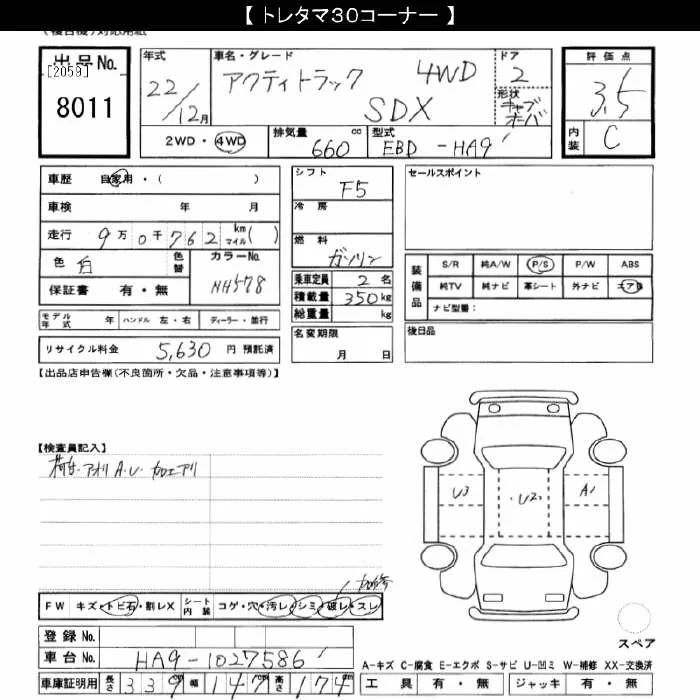 【 トレタマ３０コーナー 】
出品No.
[2059]
8011
年式
22/12月
車名・グレード
アクティトラック 4WD
SDX
ドア
2
形状
キャブオーバ
評価点
3.5
内装
C
2WD・4WD
排気量
660 cc
型式
EBD-HA9
車歴 自家用・( )
車検 年 月
走行 9万0千762 km マイル( )
色 白 色替
カラーNo.
NH578
保証書 有・無
モデル年式 年 ハンドル 左・右 ディーラー・並行
リサイクル料金 5,630 円 預託済
シフト
F5
冷房
燃料
ガソリン
乗車定員 2 名
積載量 350 kg
総重量 kg
名変期限
月 日
セールスポイント
装備品
S/R 純A/W P/S P/W ABS
純TV 純ナビ 革シート 外ナビ エアB
ナビ型番：
後日品
【出品店申告欄(不良箇所・欠品・注意事項等)】
【検査員記入】
アオリ A.U 加工アリ
U3
U2
A1
スペア
FW キズ・トビ石・割レX シート内装 コゲ・穴・汚レ・シミ・破レ・スレ
登録 No.
車台 No. HA9-1027586
車庫証明用 長さ 339 幅 147 高さ 174
A-キズ C-腐食 E-エクボ S-サビ U-凹ミ W-補修 XX-交換済
工具 有・無 ジャッキ 有・無